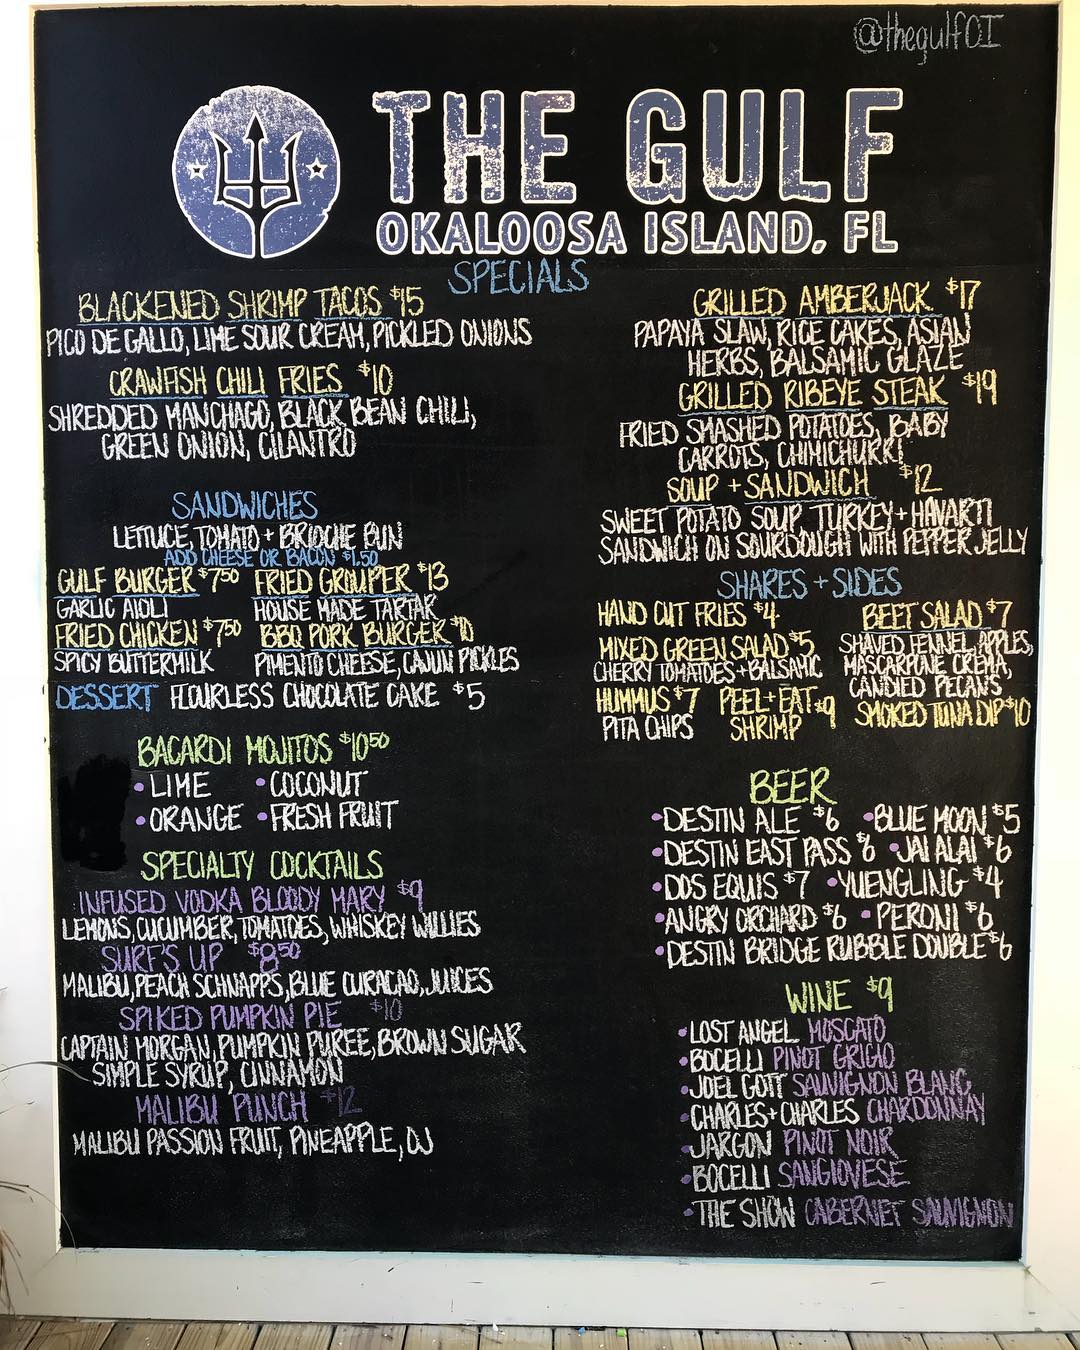 @thegulfOI
THE GULF
OKALOOSA ISLAND, FL
SPECIALS
BLACKENED SHRIMP TACOS $15
PICO DE GALLO, LIME SOUR CREAM, PICKLED ONIONS
CRAWFISH CHILI FRIES $10
SHREDDED MANCHAGO, BLACK BEAN CHILI,
GREEN ONION, CILANTRO
GRILLED AMBERJACK $17
PAPAYA SLAW, RICE CAKES, ASIAN
HERBS, BALSAMIC GLAZE
GRILLED RIBEYE STEAK $19
FRIED SMASHED POTATOES, BABY
CARROTS, CHIMICHURRI
SOUP + SANDWICH $12
SWEET POTATO SOUP, TURKEY + HAVARTI
SANDWICH ON SOURDOUGH WITH PEPPER JELLY
SANDWICHES
LETTUCE, TOMATO + BRIOCHE BUN
ADD CHEESE OR BACON $1.50
GULF BURGER $750
GARLIC AIOLI
FRIED GROUPER $13
HOUSE MADE TARTAR
FRIED CHICKEN $750
SPICY BUTTERMILK
BBQ PORK BURGER $10
PIMENTO CHEESE, CAJUN PICKLES
DESSERT FLOURLESS CHOCOLATE CAKE $5
SHARES + SIDES
HAND CUT FRIES $4
MIXED GREEN SALAD $5
CHERRY TOMATOES + BALSAMIC
HUMMUS $7
PITA CHIPS
PEEL + EAT $9
SHRIMP
BEET SALAD $7
SHAVED FENNEL, APPLES,
MASCARPONE CREMA,
CANDIED PECANS
SMOKED TUNA DIP $10
BACARDI MOJITOS $1050
• LIME • COCONUT
• ORANGE • FRESH FRUIT
SPECIALTY COCKTAILS
INFUSED VODKA BLOODY MARY $9
LEMONS, CUCUMBER, TOMATOES, WHISKEY WILLIES
SURF'S UP $850
MALIBU, PEACH SCHNAPPS, BLUE CURACAO, JUICES
SPIKED PUMPKIN PIE $10
CAPTAIN MORGAN, PUMPKIN PUREE, BROWN SUGAR
SIMPLE SYRUP, CINNAMON
MALIBU PUNCH $12
MALIBU PASSION FRUIT, PINEAPPLE, OJ
BEER
• DESTIN ALE $6 • BLUE MOON $5
• DESTIN EAST PASS $6 • JAI ALAI $6
• DOS EQUIS $7 • YUENGLING $4
• ANGRY ORCHARD $6 • PERONI $6
• DESTIN BRIDGE RUBBLE DOUBLE $6
WINE $9
• LOST ANGEL MOSCATO
• BOCELLI PINOT GRIGIO
• JOEL GOTT SAUVIGNON BLANC
• CHARLES + CHARLES CHARDONNAY
• JARGON PINOT NOIR
• BOCELLI SANGIOVESE
• THE SHOW CABERNET SAUVIGNON